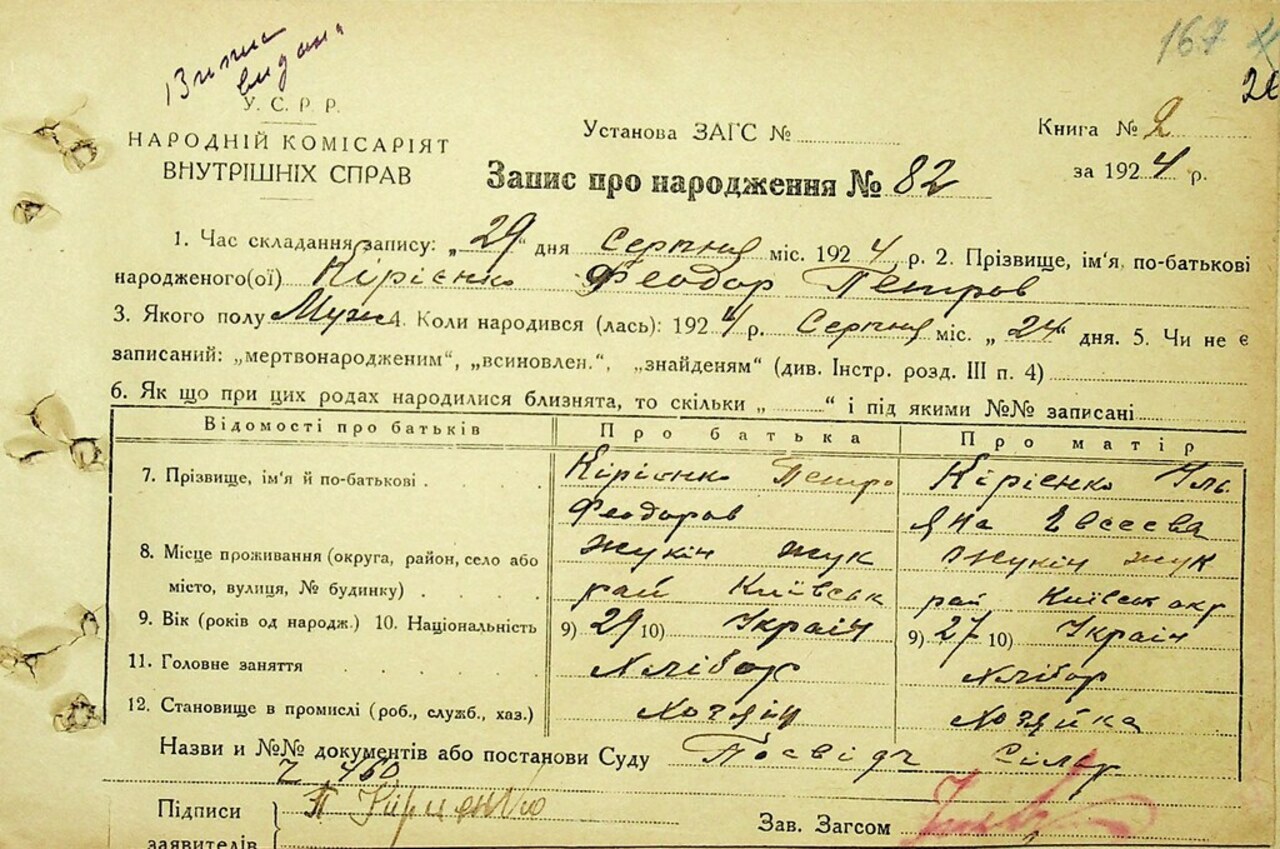 Випис
видан
167
У. С. Р. Р.
НАРОДНІЙ КОМІСАРІЯТ
ВНУТРІШНІХ СПРАВ
Установа ЗАГС №
Книга № 2
Запис про народження № 82
за 1924 р.
1. Час складання запису: „29“ дня Серпня міс. 1924 р. 2. Прізвище, ім'я, по-батькові
народженого(ої) Кірієнко Феодор Петров
3. Якого полу Муж 4. Коли народився (лась): 1924 р. Серпня міс. „24“ дня. 5. Чи не є
записаний: „мертвонародженим“, „всиновлен.“, „знайденям“ (див. Інстр. розд. III п. 4)
6. Як що при цих родах народилися близнята, то скільки „ “ і під якими №№ записані
Відомості про батьків Про батька Про матір
7. Прізвище, ім'я й по-батькові Кірієнко Петро Кірієнко Уль
Феодоров яна Евсеева
8. Місце проживання (округа, район, село або Жукін Жук Жукін Жук
місто, вулиця, № будинку) рай Київськ рай Київськ окр
9. Вік (років од народж.) 10. Національність 9) 29 10) Україн 9) 27 10) Україн
11. Головне заняття Хлібор Хлібор
12. Становище в промислі (роб., служб., хаз.) Хозяін Хозяйка
Назви и №№ документів або постанови Суду Посвідч Сільр
460
Підписи П Кириенко
Зав. Загсом
заявителів